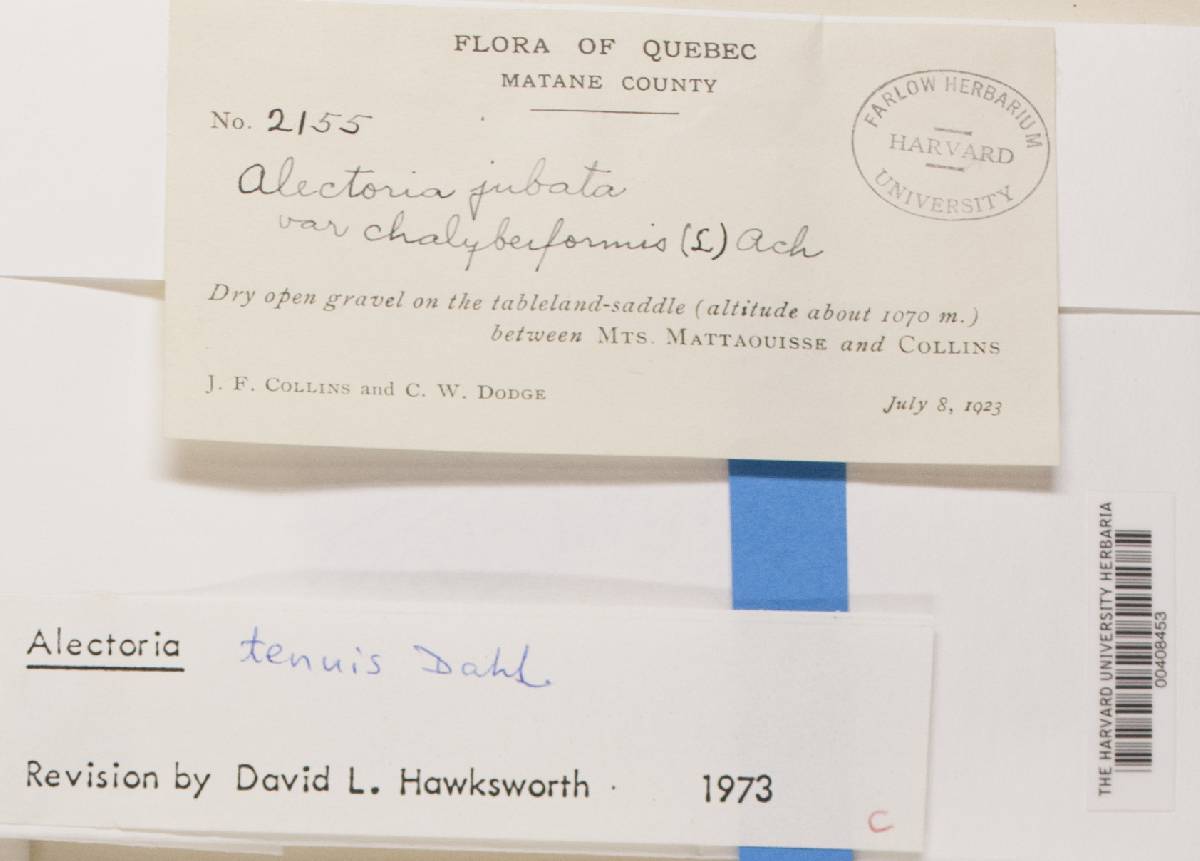 FLORA OF QUEBEC
MATANE COUNTY
No. 2155
Alectoria jubata
var chalybeiformis (L) Ach
FARLOW HERBARIUM
HARVARD
UNIVERSITY
Dry open gravel on the tableland-saddle (altitude about 1070 m.)
between MTS. MATTAOUISSE and COLLINS
J. F. COLLINS and C. W. DODGE
July 8, 1923
THE HARVARD UNIVERSITY HERBARIA
00408453
Alectoria tenuis Dahl
Revision by David L. Hawksworth 1973
C